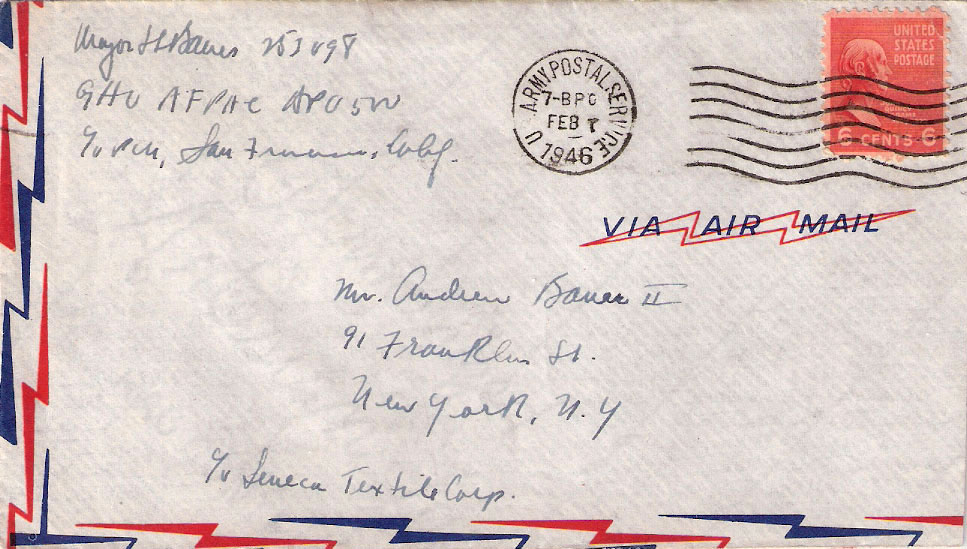 Major Bauer
GHQ AFPAC APO 500
c/o PM, San Francisco, Calif.
U. ARMY POSTAL SERVICE
7-BPO
FEB 7
1946
UNITED
STATES
POSTAGE
6 CENTS 6
VIA AIR MAIL
Mr. Andrew Bauer II
91 Franklin St.
New York, N.Y
c/o Seneca Textile Corp.